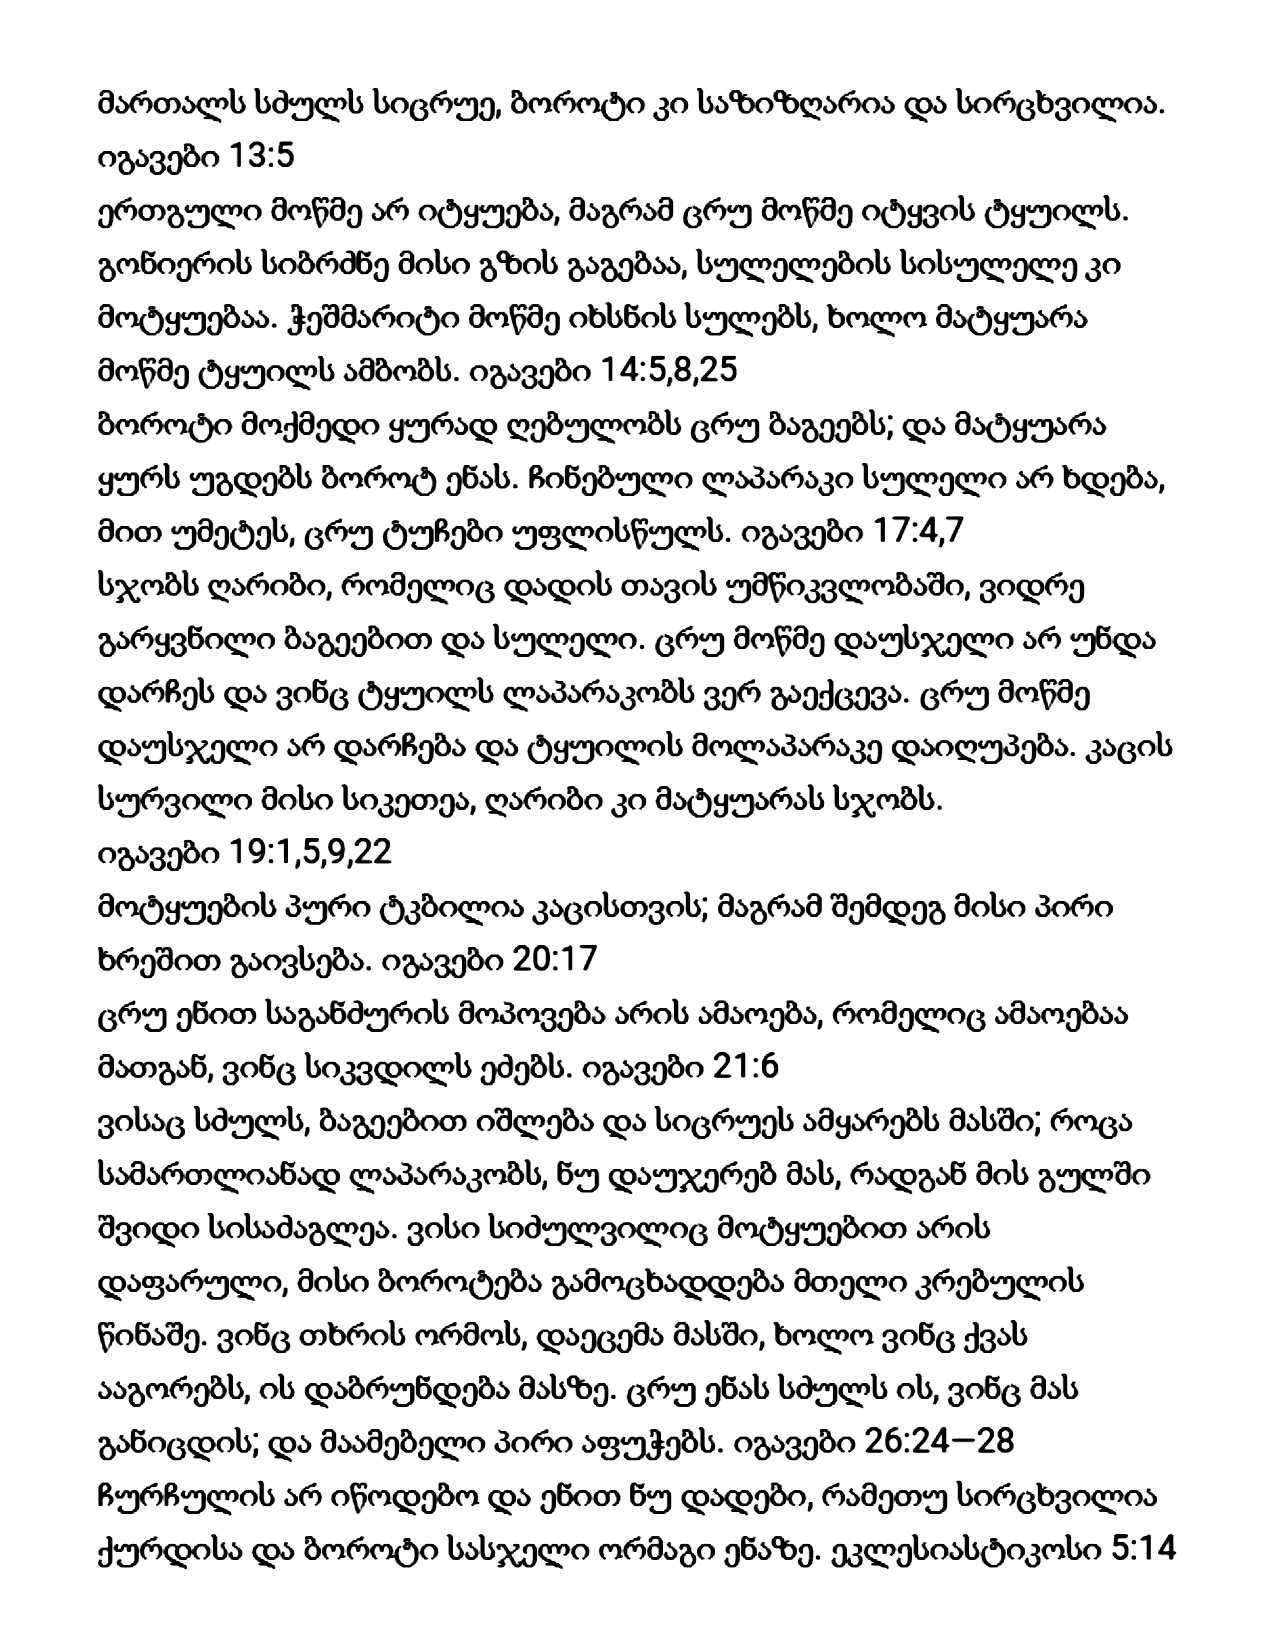 მართალს სძულს სიცრუე, ბოროტი კი საზიზღარია და სირცხვილია.
იგავები 13:5
ერთგული მოწმე არ იტყუება, მაგრამ ცრუ მოწმე იტყვის ტყუილს.
გონიერის სიბრძნე მისი გზის გაგებაა, სულელების სისულელე კი
მოტყუებაა. ჭეშმარიტი მოწმე იხსნის სულებს, ხოლო მატყუარა
მოწმე ტყუილს ამბობს. იგავები 14:5,8,25
ბოროტი მოქმედი ყურად ღებულობს ცრუ ბაგეებს; და მატყუარა
ყურს უგდებს ბოროტ ენას. ჩინებული ლაპარაკი სულელი არ ხდება,
მით უმეტეს, ცრუ ტუჩები უფლისწულს. იგავები 17:4,7
სჯობს ღარიბი, რომელიც დადის თავის უმწიკვლობაში, ვიდრე
გარყვნილი ბაგეებით და სულელი. ცრუ მოწმე დაუსჯელი არ უნდა
დარჩეს და ვინც ტყუილს ლაპარაკობს ვერ გაექცევა. ცრუ მოწმე
დაუსჯელი არ დარჩება და ტყუილის მოლაპარაკე დაიღუპება. კაცის
სურვილი მისი სიკეთეა, ღარიბი კი მატყუარას სჯობს.
იგავები 19:1,5,9,22
მოტყუების პური ტკბილია კაცისთვის; მაგრამ შემდეგ მისი პირი
ხრეშით გაივსება. იგავები 20:17
ცრუ ენით საგანძურის მოპოვება არის ამაოება, რომელიც ამაოებაა
მათგან, ვინც სიკვდილს ეძებს. იგავები 21:6
ვისაც სძულს, ბაგეებით იშლება და სიცრუეს ამყარებს მასში; როცა
სამართლიანად ლაპარაკობს, ნუ დაუჯერებ მას, რადგან მის გულში
შვიდი სისაძაგლეა. ვისი სიძულვილიც მოტყუებით არის
დაფარული, მისი ბოროტება გამოცხადდება მთელი კრებულის
წინაშე. ვინც თხრის ორმოს, დაეცემა მასში, ხოლო ვინც ქვას
ააგორებს, ის დაბრუნდება მასზე. ცრუ ენას სძულს ის, ვინც მას
განიცდის; და მაამებელი პირი აფუჭებს. იგავები 26:24—28
ჩურჩულის არ იწოდებო და ენით ნუ დადები, რამეთუ სირცხვილია
ქურდისა და ბოროტი სასჯელი ორმაგი ენაზე. ეკლესიასტიკოსი 5:14